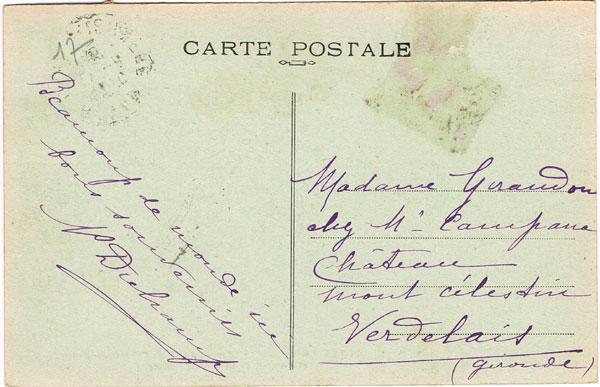 17
CARTE POSTALE
Beaucoup de monde ici
bons souvenirs
Madame Giraudon
chez Mr Campana
Château
mont célestin
Verdelais
(gironde)